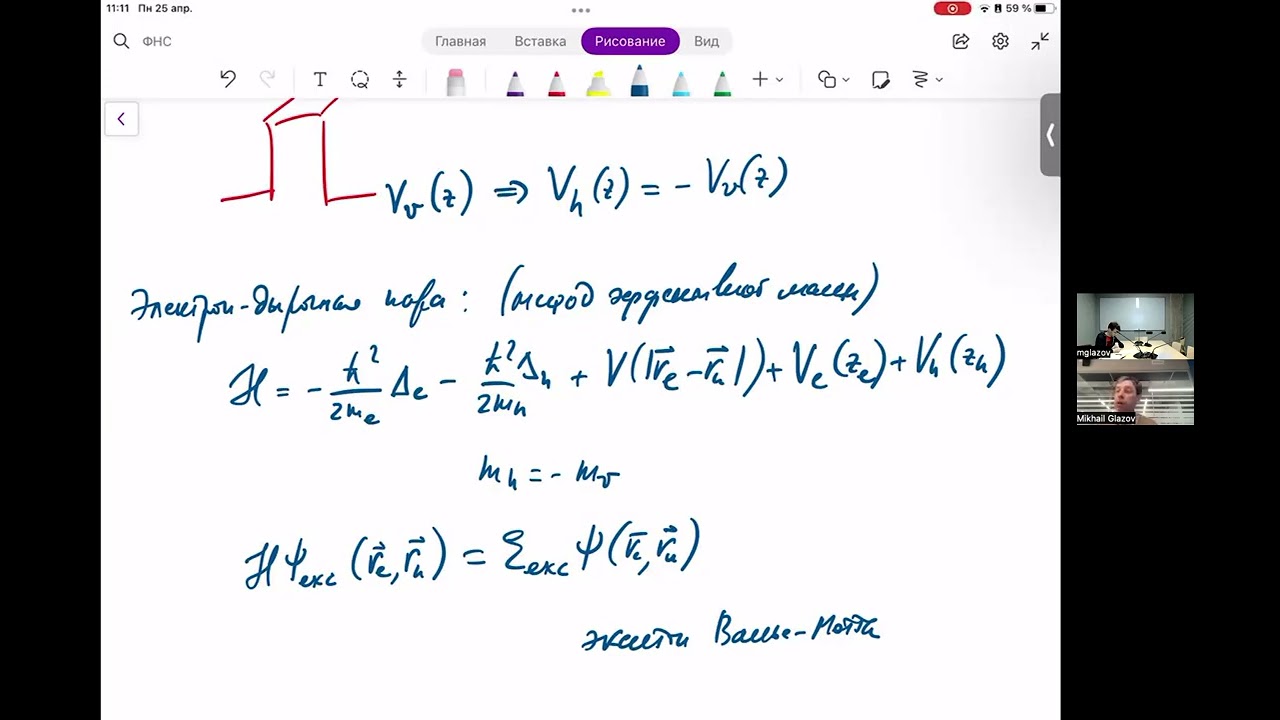 11:11 Пн 25 апр.
59 %
ФНС
Главная Вставка Рисование Вид
V_v(z) ⇒ V_h(z) = - V_v(z)
Электрон-дырочная пара: (метод эффективной массы)
ℋ = - ℏ²/2m_e Δ_e - ℏ²/2m_h Δ_h + V(|r⃗_e - r⃗_h|) + V_e(z_e) + V_h(z_h)
m_h = - m_v
ℋΨ_екс(r⃗_e, r⃗_h) = Ɛ_екс Ψ(r⃗_e, r⃗_h)
экситон Ванье-Мотта
mglazov
Mikhail Glazov